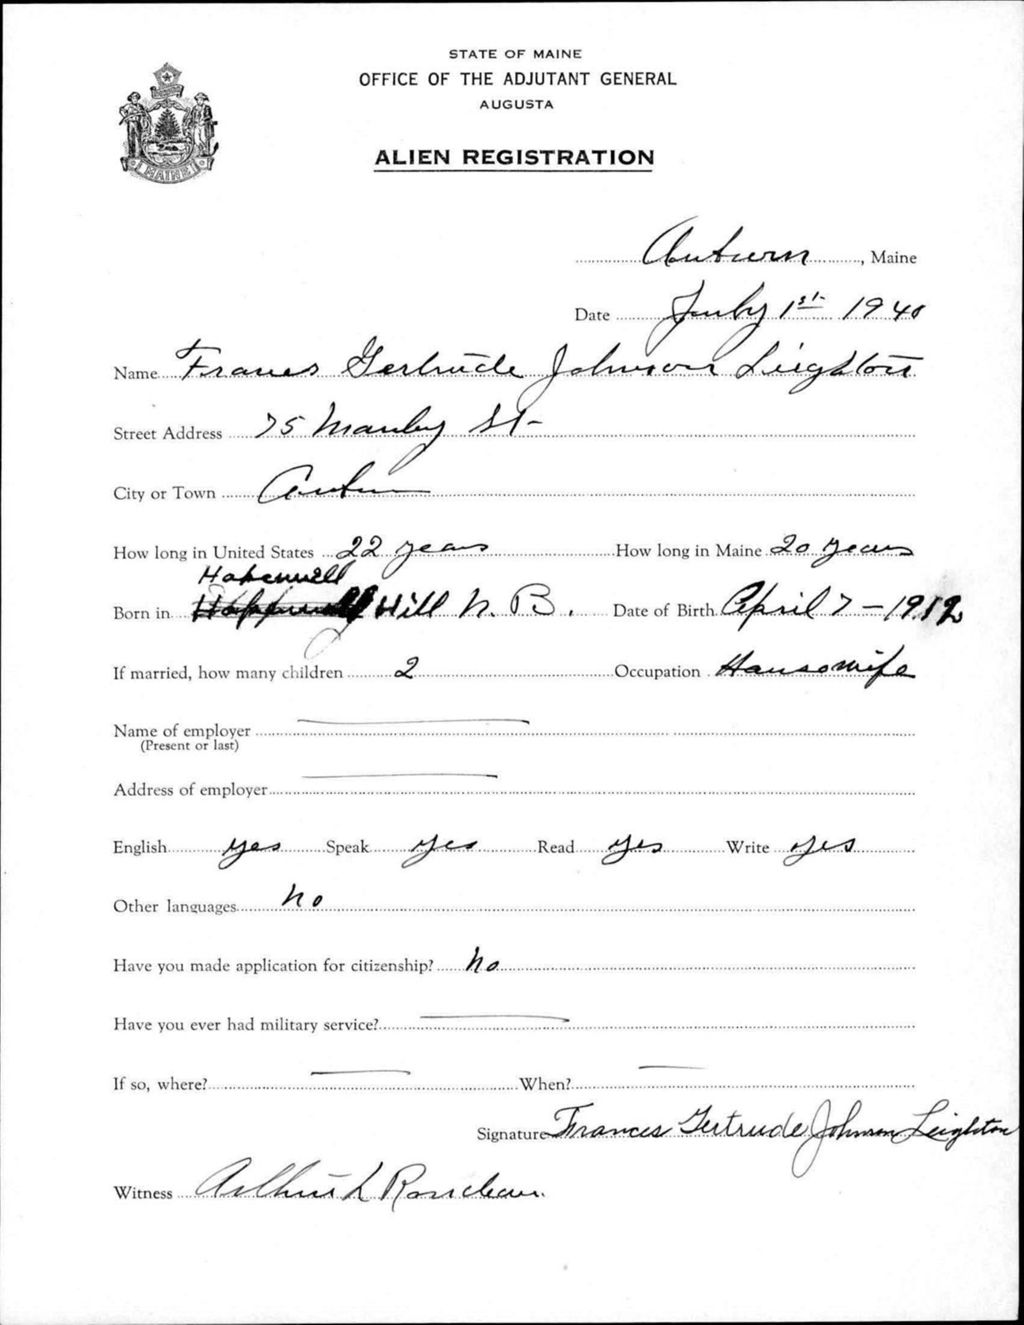 STATE OF MAINE
OFFICE OF THE ADJUTANT GENERAL
AUGUSTA
ALIEN REGISTRATION
MAINE
Auburn, Maine
Date July 1st 1940
Name Frances Gertrude Johnson Leighton
Street Address 75 Manley St-
City or Town Auburn
How long in United States 22 years How long in Maine 20 years
Hopewell
Born in Hill N. B. Date of Birth April 7 - 1912
If married, how many children 2 Occupation Housewife
Name of employer
(Present or last)
Address of employer
English yes Speak yes Read yes Write yes
Other languages No
Have you made application for citizenship? No
Have you ever had military service?
If so, where? When?
Signature Frances Gertrude Johnson Leighton
Witness Arthur L